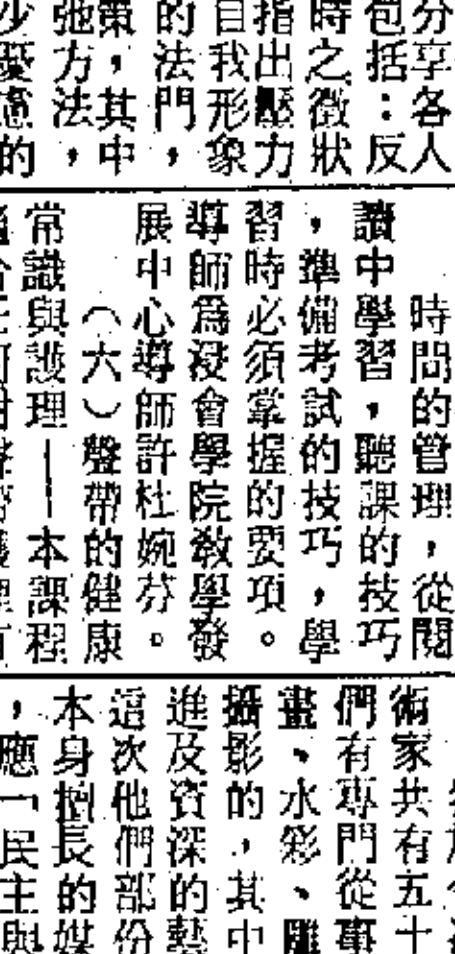 分享各人
包括：反
時之徵狀
指出壓力
自我形象
的法門，
策，其中
弛方法，
少憂慮的
時間的管理，從閱
讀中學習，聽課的技巧
，準備考試的技巧，學
習時必須掌握的要項。
導師爲浸會學院教學發
展中心導師許杜婉芬。
（六）聲帶的健康
常識與護理——本課程
術家共有五十
們有專門從事
畫、水彩、雕
攝影的，其中
進及資深的藝
這次他們部份
本身擅長的媒
，應「民主與